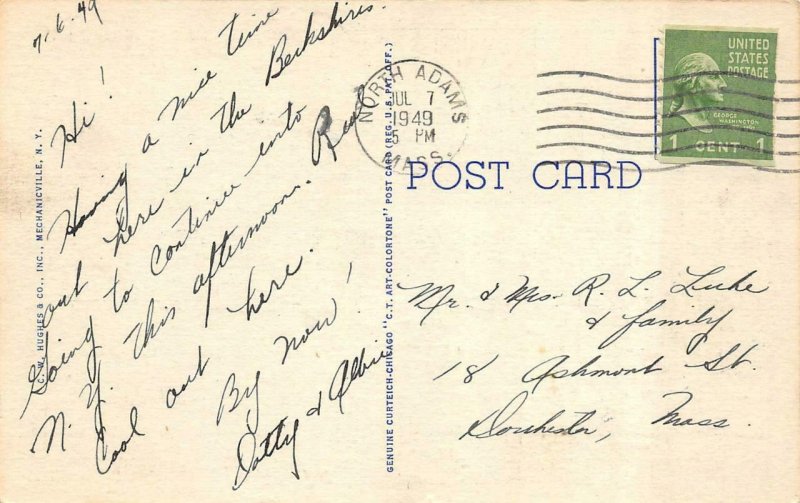 7-6-49
Hi!
Having a nice time
out here in the Berkshires.
Going to continue into
N.Y. this afternoon. Real
Cool out here.
By now!
Dotty & Albie
C. W. HUGHES & CO., INC., MECHANICVILLE, N. Y.
GENUINE CURTEICH-CHICAGO "C. T. ART-COLORTONE" POST CARD (REG. U. S. PAT. OFF.)
NORTH ADAMS
JUL 7
1949
5 PM
MASS.
UNITED
STATES
POSTAGE
GEORGE
WASHINGTON
1 CENT 1
POST CARD
Mr. & Mrs. R. L. Luke
& family
18 Ashmont St.
Dorchester, Mass.